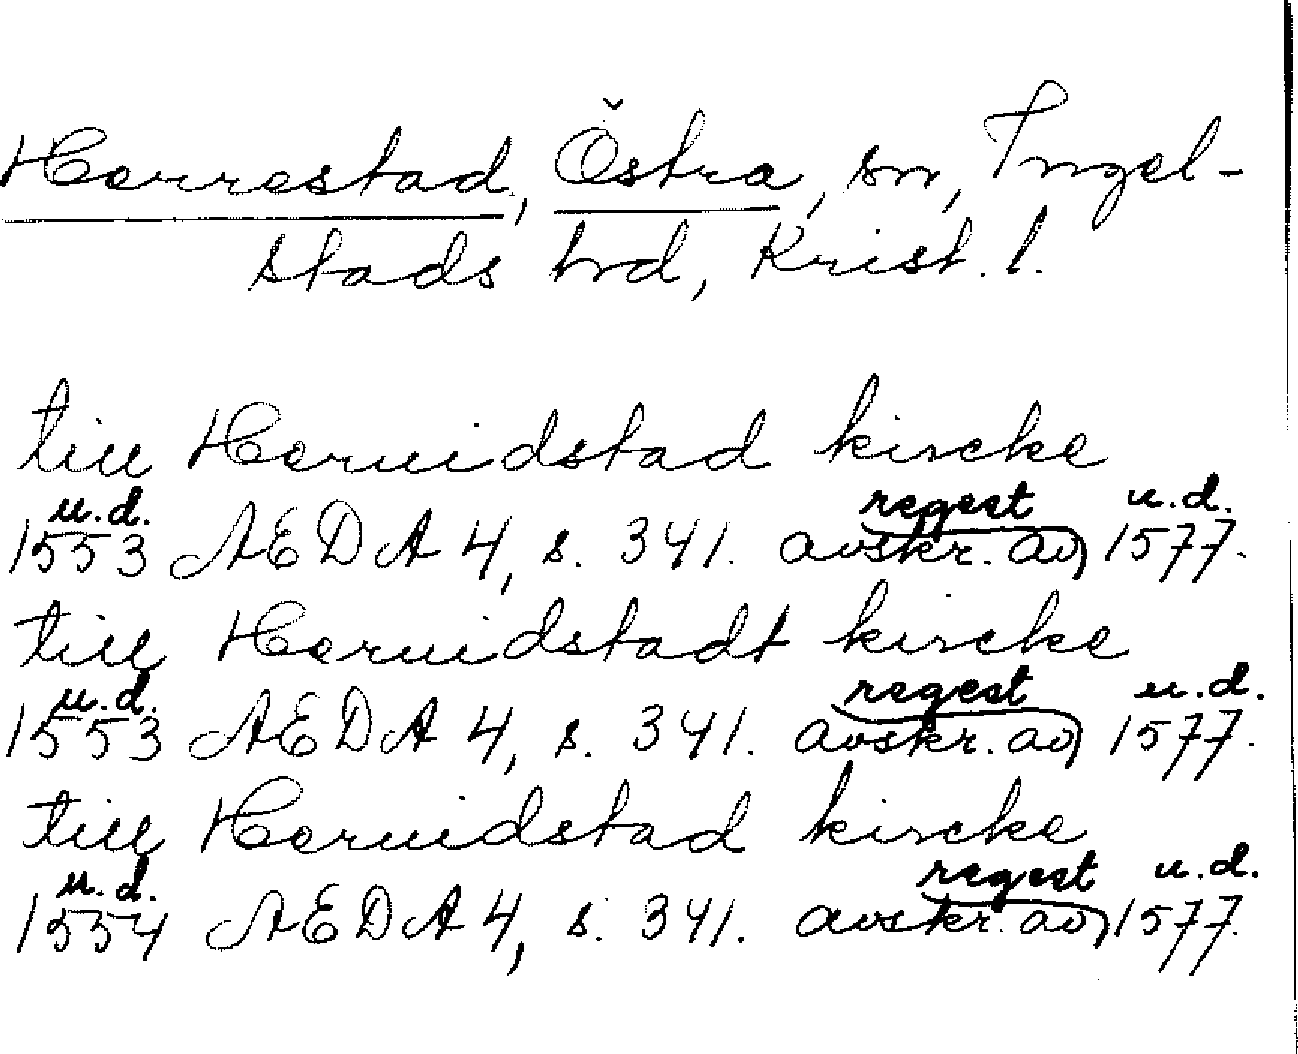 Herrestad, Östra, sn, Ingel-
stads hd, Krist. l.
till Heruidstad kircke
u.d. regest u.d.
1553 AEDA 4, s. 341. avskr. av 1577.
till Heruidstadt kircke
u.d. regest u.d.
1553 AEDA 4, s. 341. avskr. av 1577.
till Heruidstad kircke
u.d. regest u.d.
1554 AEDA 4, s. 341. avskr. av 1577.